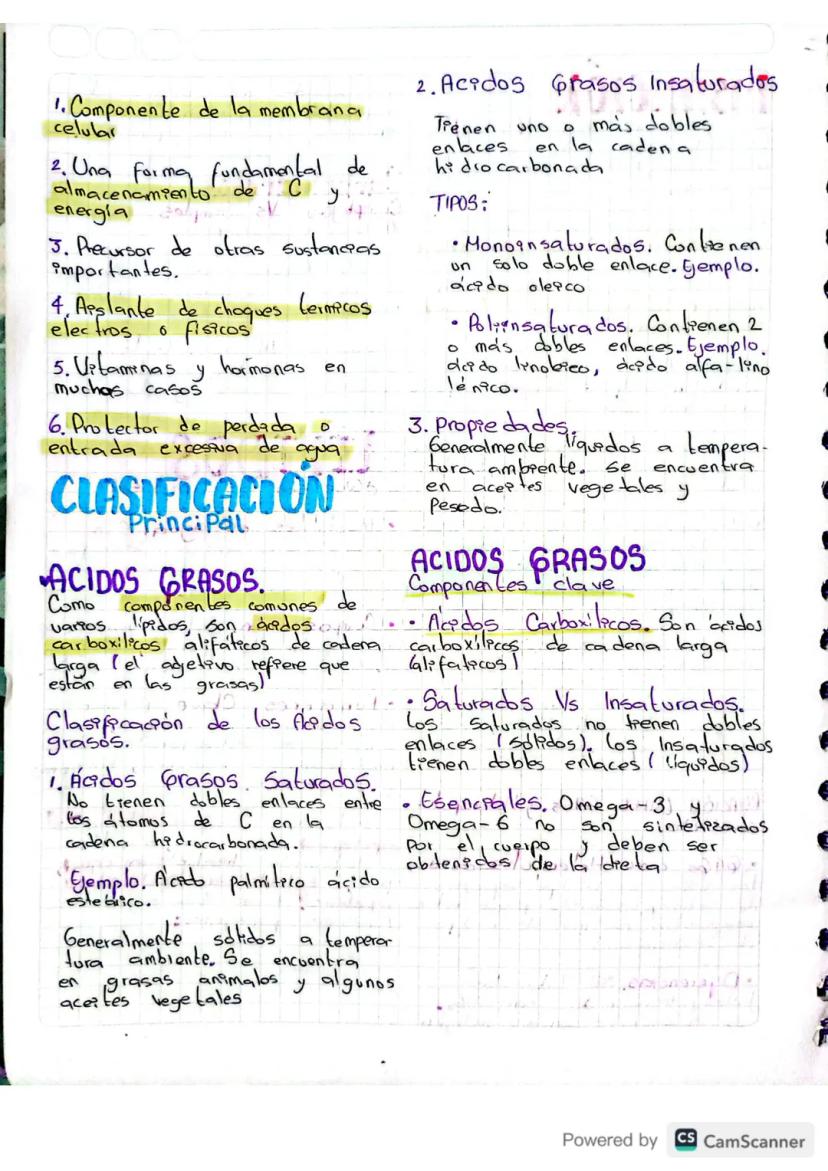 1. Componente de la membrana
celular
2. Una forma fundamental de
almacenamiento de C y
energía
3. Precursor de otras sustancias
importantes.
4. Aislante de choques termicos
electros o físicos
5. Vitaminas y hormonas en
muchos casos
6. Protector de perdada o
entrada excesiva de agua
CLASIFICACIÓN
Principal
ACIDOS GRASOS.
Como componentes comunes de
varios lípidos, son ácidos
carboxílicos alifáticos de cadena
larga (el adjetivo refiere que
están en las grasas)
Clasificación de los Ácidos
grasos.
1. Ácidos Grasos Saturados.
No tienen dobles enlaces entre
los átomos de C en la
cadena hidrocarbonada.
Ejemplo. Acido palmítico ácido
esteárico.
Generalmente sólidos a tempera
tura ambiente. Se encuentra
en grasas animalos y algunos
aceites vegetales
2. Acidos Grasos Insaturados
Tienen uno o más dobles
enlaces en la cadena
hidrocarbonada
TIPOS:
• Monoinsaturados. Contienen
un solo doble enlace. Ejemplo.
ácido oleico
• Poliinsaturados. Contienen 2
o más dobles enlaces. Ejemplo.
ácido linoleico, ácido alfa-lino
lénico.
3. Propiedades.
Generalmente líquidos a tempera-
tura ambiente. Se encuentra
en aceites vegetales y
Pescado.
ACIDOS GRASOS
Componentes clave
• Acidos Carboxílicos. Son ácidos
carboxílicos de cadena larga
(alifaticos)
• Saturados Vs Insaturados.
Los saturados no tienen dobles
enlaces (sólidos). Los Insaturados
tienen dobles enlaces (líquidos)
• Esenciales. Omega-3 y
Omega-6 no son sintetizados
Por el cuerpo y deben ser
obtenidos de la dieta
Powered by CS CamScanner